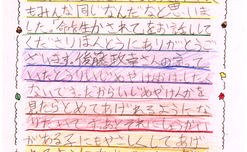 もみんな同じなんだ」など思いま
した。「命を生かされて」をお話をして
くださりほんとうにありがとうご
ざいます。後藤政幸さんの言って
いたとうりいじめやけんかはしたく
ないです。だからいじめやけんかを
見たらとめてあげれるようにな
りたいです。あとそれにしょうがい
がある子にもやさしくしてあげ